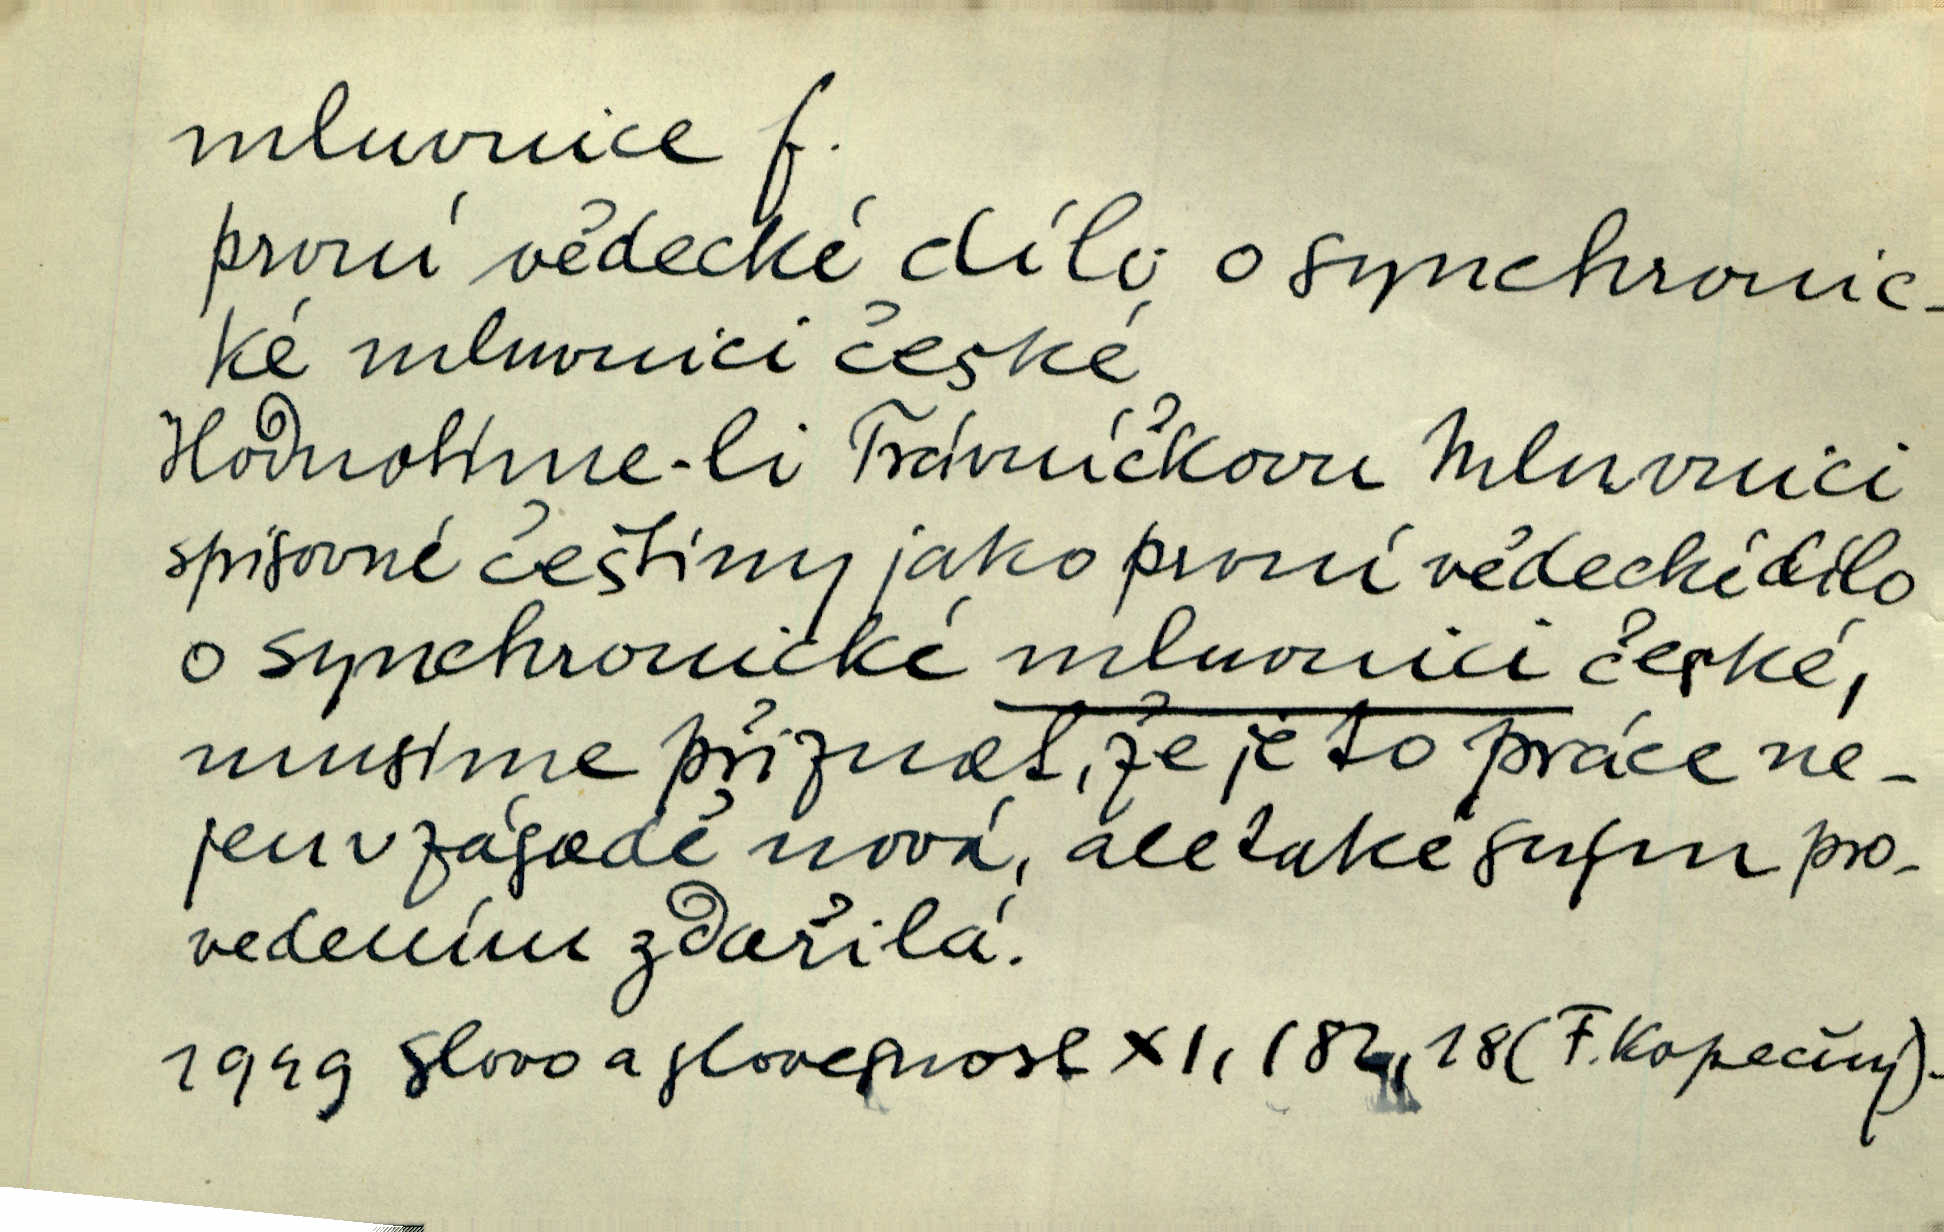 mluvnice f.
první vědecké dílo o synchronic-
ké mluvnici české
Hodnotíme-li Trávníčkovu Mluvnici
spisovné češtiny jako první vědecké dílo
o synchronické mluvnici české,
musíme přiznat, že je to práce ne-
jen v zásadě nová, ale také svým pro-
vedením zdařilá.
1949 Slovo a slovesnost XI, 182, 18 (F. Kopečný).